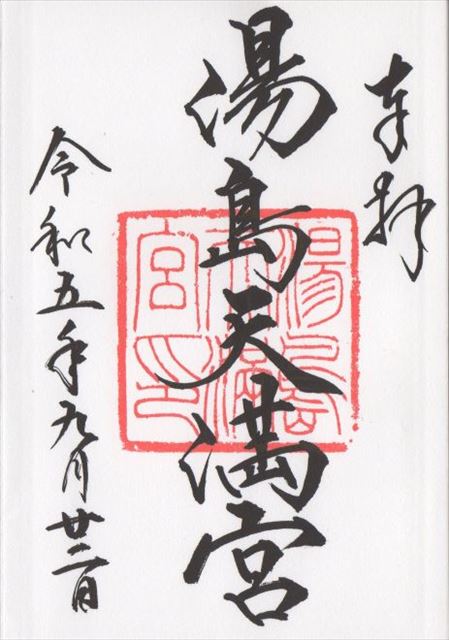 奉拝
湯島天満宮
湯島天満宮印
令和五年九月廿二日